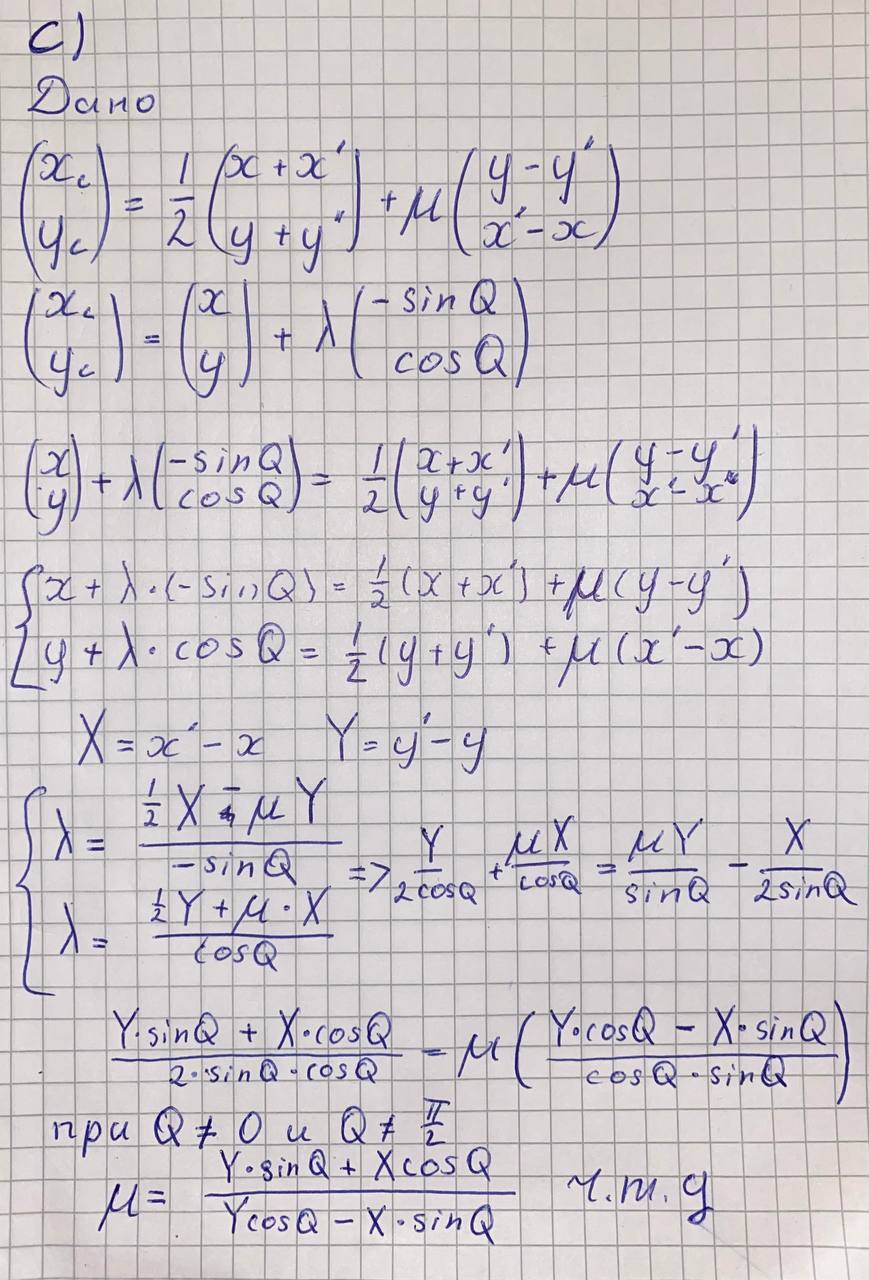 c)
Дано
(x_c; y_c) = 1/2 (x + x'; y + y') + μ (y - y'; x' - x)
(x_c; y_c) = (x; y) + λ (-sinQ; cosQ)
(x; y) + λ (-sinQ; cosQ) = 1/2 (x + x'; y + y') + μ (y - y'; x' - x)
{ x + λ·(-sinQ) = 1/2 (x + x') + μ(y - y')
y + λ·cosQ = 1/2 (y + y') + μ(x' - x)
X = x' - x Y = y' - y
{ λ = (1/2 X - μY)/(-sinQ)
λ = (1/2 Y + μ·X)/(cosQ) => Y/(2cosQ) + μX/(cosQ) = μY/(sinQ) - X/(2sinQ)
(Y·sinQ + X·cosQ)/(2·sinQ·cosQ) = μ((Y·cosQ - X·sinQ)/(cosQ·sinQ))
при Q ≠ 0 и Q ≠ π/2
μ = (Y·sinQ + XcosQ)/(YcosQ - X·sinQ) ч.т.д